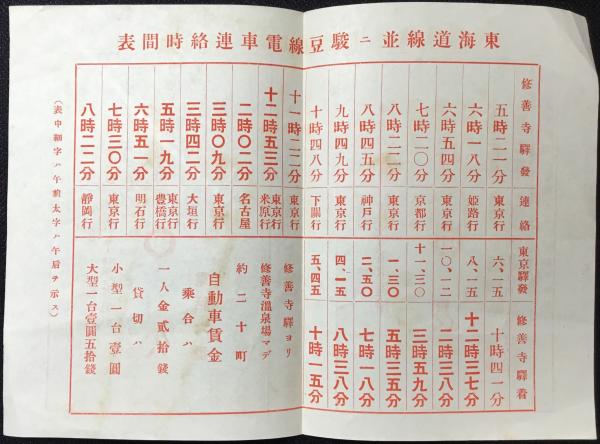 東海道線並ニ駿豆線電車連絡時間表
修善寺驛發 連絡 東京驛發 修善寺驛着
五時二一分 東京行 六、一五 十時四一分
六時一八分 姫路行 八、二五 十二時三七分
六時五四分 東京行 一〇、一二 二時三八分
七時二〇分 京都行 十一、三〇 三時五九分
八時二二分 東京行 一、三〇 五時三五分
八時四五分 神戸行 二、五〇 七時一八分
九時四九分 東京行 四、一五 八時三八分
十時四八分 下關行 五、四五 十時一五分
十一時二二分 東京行
十二時五三分 東京行 米原行
二時〇二分 名古屋
三時〇九分 東京行
三時四二分 大垣行
五時一九分 東京行 豊橋行
六時五一分 明石行
七時三〇分 東京行
八時二二分 靜岡行
修善寺驛ヨリ
修善寺溫泉場マデ
約二十町
自動車賃金
乘合ハ
一人金貳拾錢
貸切ハ
小型一台壹圓
大型一台壹圓五拾錢
(表中細字ハ午前太字ハ午后ヲ示ス)